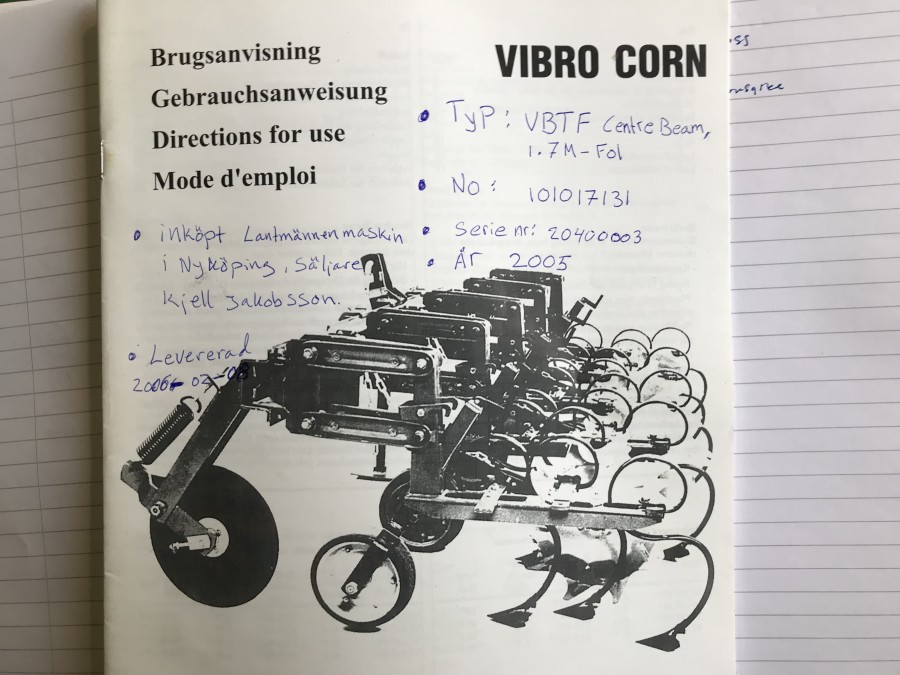 Brugsanvisning
Gebrauchsanweisung
Directions for use
Mode d'emploi
VIBRO CORN
• Typ: VBTF Centre Beam,
1.7M-Fol
• No: 101017131
• Serie nr: 20400003
• År 2005
• inköpt Lantmännen maskin
i Nyköping, Säljare
Kjell Jakobsson.
• Levererad
2006-02-08